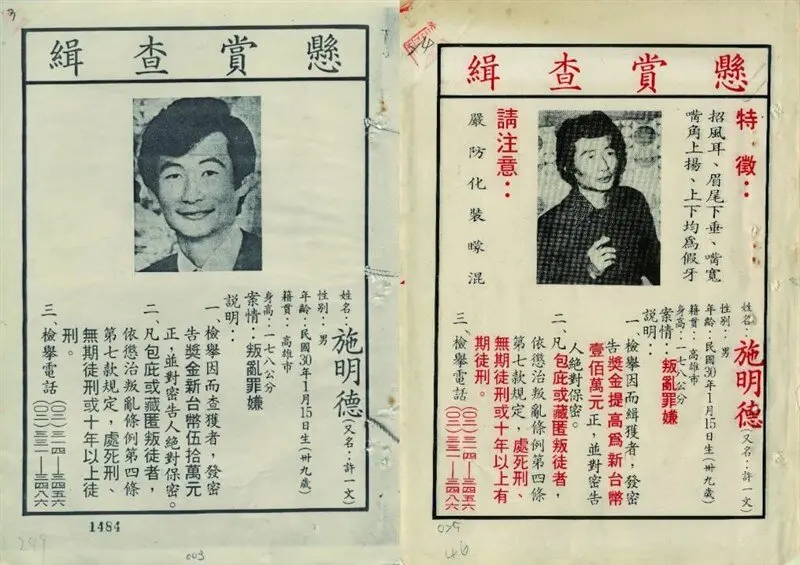 懸賞查緝
姓名：施明德（又名：許一文）
性別：男
年齡：民國30年1月15日生（卅九歲）
籍貫：高雄市
身高：一七八公分
案情：叛亂罪嫌
說明：
一、檢舉因而查獲者，發密
告獎金新台幣伍拾萬元
正，並對密告人絕對保密。
二、凡包庇或藏匿叛徒者，
依懲治叛亂條例第四條
第七款規定，處死刑、
無期徒刑或十年以上徒
刑。
三、檢舉電話
（〇二）三一四—三四五六
（〇二）三三一—三四八六
1484
003
懸賞查緝
特徵：
招風耳、眉尾下垂、嘴寬
嘴角上揚、上下均爲假牙
請注意：
嚴防化裝矇混
姓名：施明德（又名：許一文）
性別：男
年齡：民國30年1月15日生（卅九歲）
籍貫：高雄市
身高：一七八公分
案情：叛亂罪嫌
說明：
一、檢舉因而緝獲者，發密
告獎金提高爲新台幣
壹佰萬元正，並對密告
人絕對保密。
二、凡包庇或藏匿叛徒者，
依懲治叛亂條例第四條
第七款規定，處死刑、
無期徒刑或十年以上有
期徒刑。
三、檢舉電話
（〇二）三一四—三四五六
（〇二）三三一—三四八六